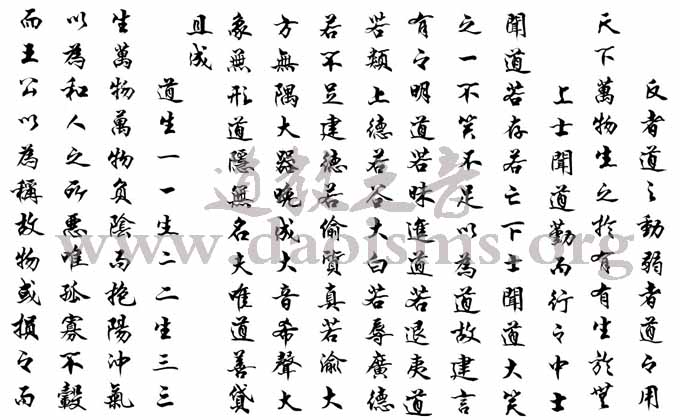 反者道之動弱者道之用
天下萬物生之於有有生於無
上士聞道勤而行之中士
聞道若存若亡下士聞道大笑
之一不笑不足以為道故建言
有之明道若昧進道若退夷道
若類上德若谷大白若辱廣德
若不足建德若偷質真若渝大
方無隅大器晚成大音希聲大
象無形道隱無名夫唯道善貸
且成
道生一一生二二生三三
生萬物萬物負陰而抱陽沖氣
以為和人之所惡唯孤寡不穀
而王公以為稱故物或損之而
道教之音
www.daoisms.org